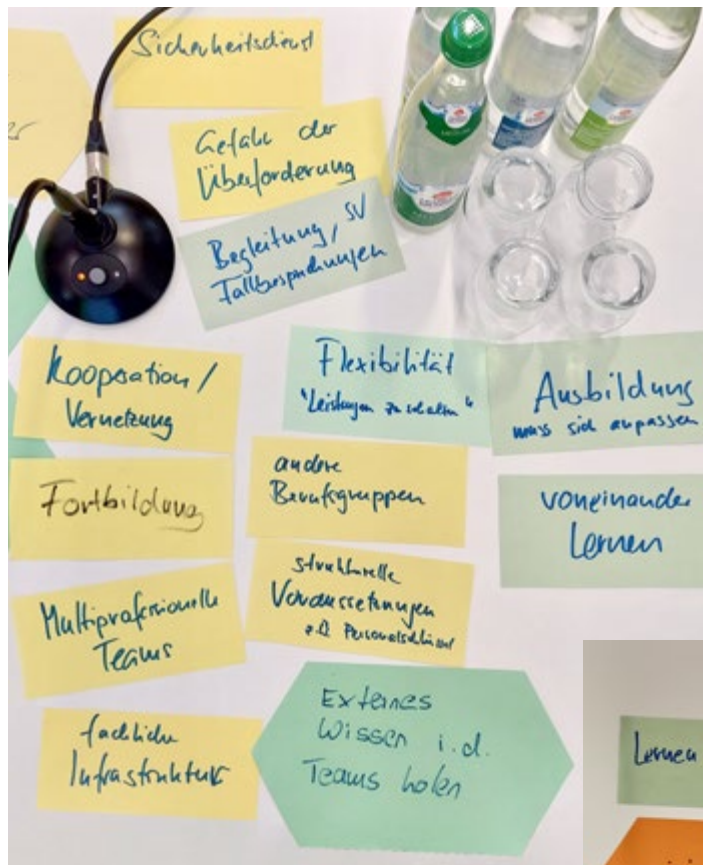 Sicherheitsdienst
Gefahr der
Überforderung
Begleitung, SV
Fallbesprechungen
Kooperation /
Vernetzung
Flexibilität
"Leistungen zu schalten"
Ausbildung
muss sich anpassen
Fortbildung
andere
Berufsgruppen
voneinander
Lernen
Multiprofessionelle
Teams
strukturelle
Voraussetzungen
z.B. Personalschlüssel
fachliche
Infrastruktur
Externes
Wissen i.d.
Teams holen
Lernen